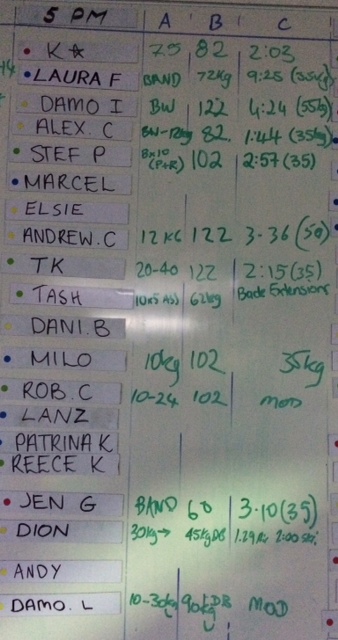 5 PM A B C
K ☆ 75 82 2:03
LAURA F BAND 72kg 9:25 (35kg)
DAMO I BW 122 4:24 (55kg)
ALEX. C BW-12kg 82 1:44 (35kg)
STEF P 8x10 (P+R) 102 2:57 (35)
MARCEL
ELSIE
ANDREW. C 12 KG 122 3-36 (50)
TK 20-40 122 2:15 (35)
TASH 10x5 ASS 62kg Back Extensions
DANI. B
MILO 10kg 102 35kg
ROB. C 10-24 102 MOD
LANZ
PATRINA K
REECE K
JEN G BAND 60 3-10 (35)
DION 30kg → 45kg DB 1.29 2:00
ANDY
DAMO. L 10-30kg 90kg DB MOD